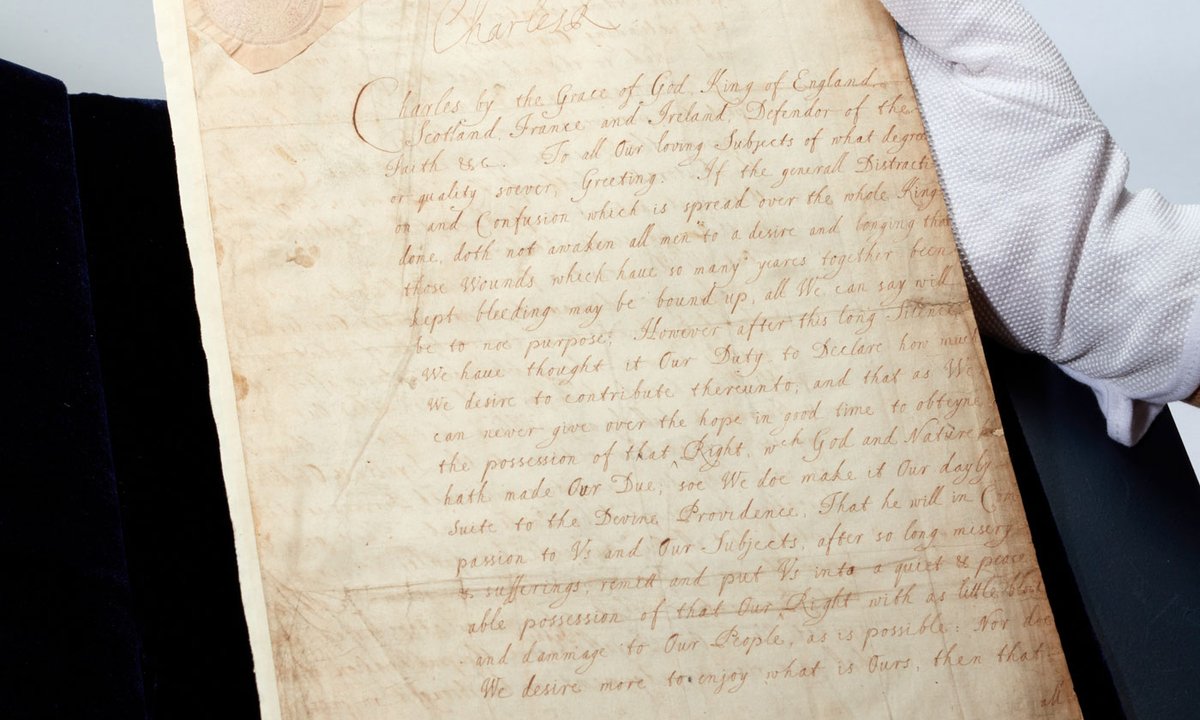 Charles R
Charles by the Grace of God, King of England,
Scotland, France and Ireland, Defendor of the
Faith &c. To all Our loving Subjects of what degree
or quality soever, Greeting. If the generall Distracti
on and Confusion which is spread over the whole King
dome, doth not awaken all men to a desire and longing that
those Wounds which have so many yeares together been
kept bleeding may be bound up, all We can say will
be to noe purpose; However after this long Silence
We have thought it Our Duty to Declare how much
We desire to contribute thereunto; and that as We
can never give over the hope in good time to obteyne
the possession of that Right, wch God and Nature
hath made Our Due; soe We doe make it Our dayly
suite to the Devine Providence, That he will in Com
passion to Vs and Our Subjects, after so long misery
& sufferings, remitt and put Vs into a quiet & peace
able possession of that Our Right with as little bloud
and dammage to Our People, as is possible: Nor doe
We desire more to enjoy what is Ours, then that
all